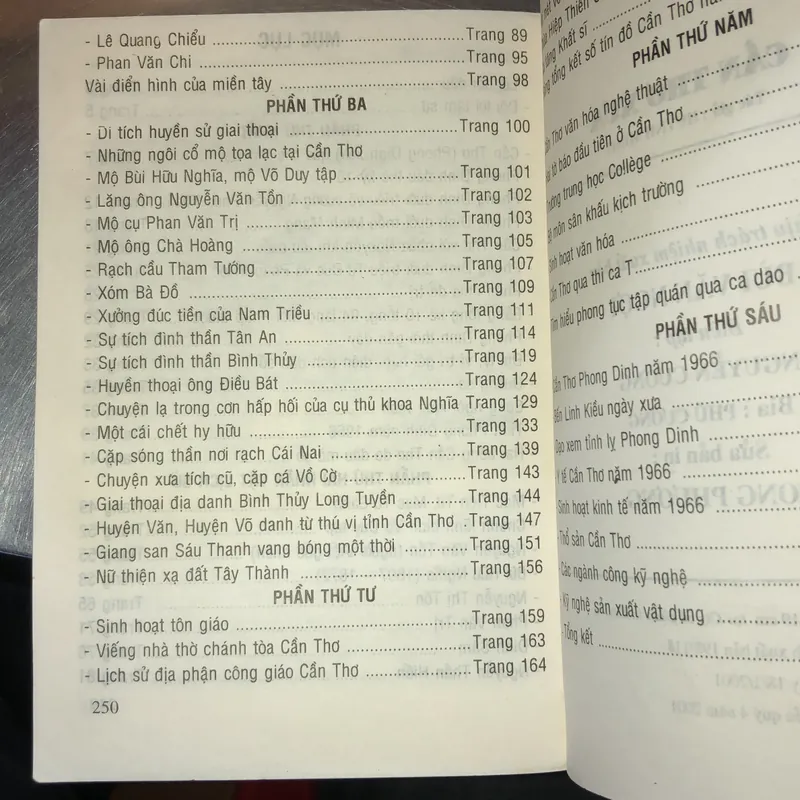 - Lê Quang Chiểu ........ Trang 89
- Phan Văn Chi ........ Trang 95
Vài điển hình của miền tây ........ Trang 98
PHẦN THỨ BA
- Di tích huyền sử giai thoại ........ Trang 100
- Những ngôi cổ mộ tọa lạc tại Cần Thơ
- Mộ Bùi Hữu Nghĩa, mộ Võ Duy tập ........ Trang 101
- Lăng ông Nguyễn Văn Tồn ........ Trang 102
- Mộ cụ Phan Văn Trị ........ Trang 103
- Mộ ông Chà Hoàng ........ Trang 105
- Rạch cầu Tham Tướng ........ Trang 107
- Xóm Bà Đồ ........ Trang 109
- Xưởng đúc tiền của Nam Triều ........ Trang 111
- Sự tích đình thần Tân An ........ Trang 114
- Sự tích đình thần Bình Thủy ........ Trang 119
- Huyền thoại ông Điều Bát ........ Trang 124
- Chuyện lạ trong cơn hấp hối của cụ thủ khoa Nghĩa Trang 129
- Một cái chết hy hữu ........ Trang 133
- Cặp sóng thần nơi rạch Cái Nai ........ Trang 139
- Chuyện xưa tích cũ, cặp cá Vồ Cờ ........ Trang 143
- Giai thoại địa danh Bình Thủy Long Tuyền ........ Trang 144
- Huyện Văn, Huyện Võ danh từ thú vị tỉnh Cần Thơ . Trang 147
- Giang san Sáu Thanh vang bóng một thời ........ Trang 151
- Nữ thiện xạ đất Tây Thành ........ Trang 156
PHẦN THỨ TƯ
- Sinh hoạt tôn giáo ........ Trang 159
- Viếng nhà thờ chánh tòa Cần Thơ ........ Trang 163
- Lịch sử địa phận công giáo Cần Thơ ........ Trang 164
250
Hiệp Thiên
Khất sĩ
tổng kết số tín đồ Cần Thơ
PHẦN THỨ NĂM
Thơ văn hóa nghệ thuật
tờ báo đầu tiên ở Cần Thơ
trung học Collège
môn sân khấu kịch trường
hoạt văn hóa
Thơ qua thi ca T...
hiểu phong tục tập quán qua ca dao
PHẦN THỨ SÁU
Thơ Phong Dinh năm 1966
Linh Kiều ngày xưa
xem tỉnh lỵ Phong Dinh
Y tế Cần Thơ năm 1966
Sinh hoạt kinh tế năm 1966
- Thổ sản Cần Thơ
- Các ngành công kỹ nghệ
- Kỹ nghệ sản xuất vật dụng
- Tổng kết